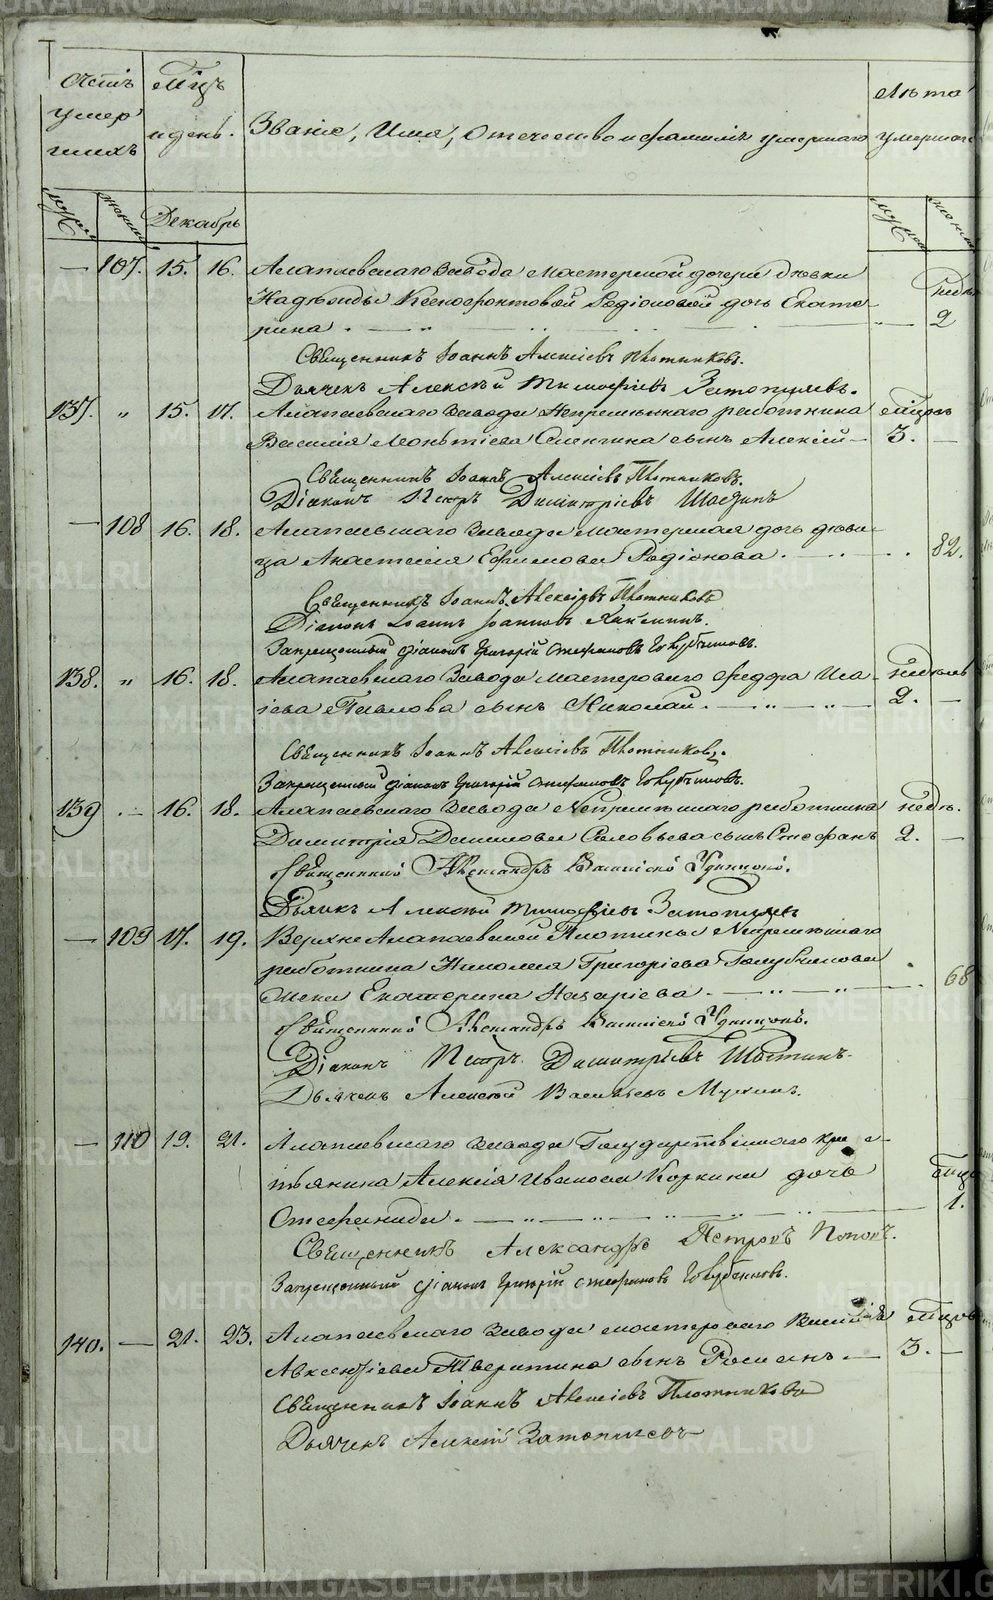 Счетъ умершихъ
Мѣсяцъ и день.
Званіе, Имя, Отечество и фамилія умершаго
Лѣта умершаго
Декабрь
— 107. 15. 16. Алапаевскаго Завода мастерской дочери дѣвки
Надежды Ксенофонтовой Родіоновой дочь Екате-
рина. недѣль 2
Священникъ Іоаннъ Алексіевъ Плотниковъ.
Дьячекъ Алексѣй Тимофѣевъ Затопляевъ.
137. „ 15. 17. Алапаевскаго Завода Непремѣннаго работника Мѣсяцъ
Василія Леонтіева сынъ Алексій — 3. —
Священникъ Іоаннъ Алексіевъ Плотниковъ.
Діаконъ Петръ Димитріевъ Шастинъ
— 108 16. 18. Алапаевскаго Завода мастерская дочь дѣви-
ца Анастасія Ефимова Родіонова. 82.
Священникъ Іоаннъ Алексіевъ Плотниковъ
Діаконъ Іоаннъ Іоанновъ
Запрещенный діаконъ Григорій Стефановъ
138. „ 16. 18. Алапаевскаго Завода мастероваго Ѳедора Иса- недѣль
іева Павлова сынъ Николай. 2. —
Священникъ Іоаннъ Алексіевъ Плотниковъ.
Запрещенный діаконъ Григорій Стефановъ
139 — 16. 18. Алапаевскаго Завода Непремѣннаго работника недѣ.
Димитрія Данилова Соловьева сынъ Стефанъ 2. —
Священникъ Александръ Удинцовъ.
Дьячекъ Алексѣй Тимофѣевъ Затопляевъ
— 109 17. 19. Верхне Алапаевской Плотины Непремѣннаго
работника Николая Григоріева Голубчикова
жена Екатерина Назаріева. 68
Священникъ Александръ Удинцовъ.
Діаконъ Петръ Димитріевъ Шастинъ.
Дьячекъ Алексѣй Васильевъ Мухинъ.
— 110 19. 21. Алапаевскаго Завода Государственнаго кре с-
тьянина Алексія Иванова Коркина дочь
Стефанида. 1.
Священникъ Александръ Петровъ Поповъ.
Запрещенный діаконъ Григорій Стефановъ
140. — 21. 23. Алапаевскаго Завода мастероваго Василія Мѣсяцъ
Авксентіева Тверитина сынъ Романъ — 3. —
Священникъ Іоаннъ Алексіевъ Плотниковъ
Дьячекъ Алексій Затопляевъ
METRIKI.GASO-URAL.RU